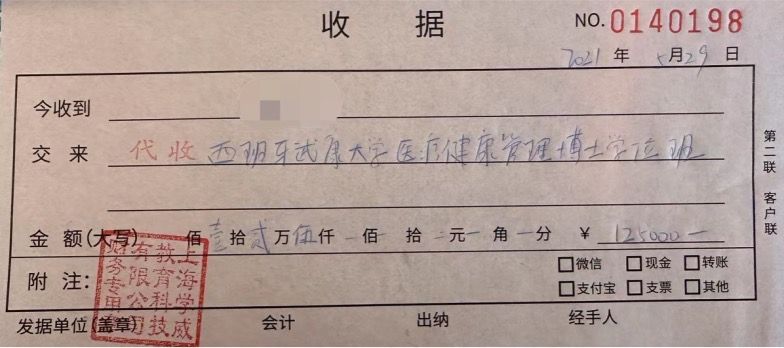 收 据
NO.0140198
2021 年 5 月 29 日
今收到
交 来 代 收 西班牙武康大学医疗健康管理博士学位班
金 额(大写) 佰 壹 拾 贰 万 伍 仟 一 佰 一 拾 一 元 一 角 一 分 ¥ 125000一
附 注: □微信 □现金 □转账
□支付宝 □支票 □其他
发据单位(盖章) 会计 出纳 经手人
第二联 客户联
上海学威
教育科技
有限公司
财务专用章